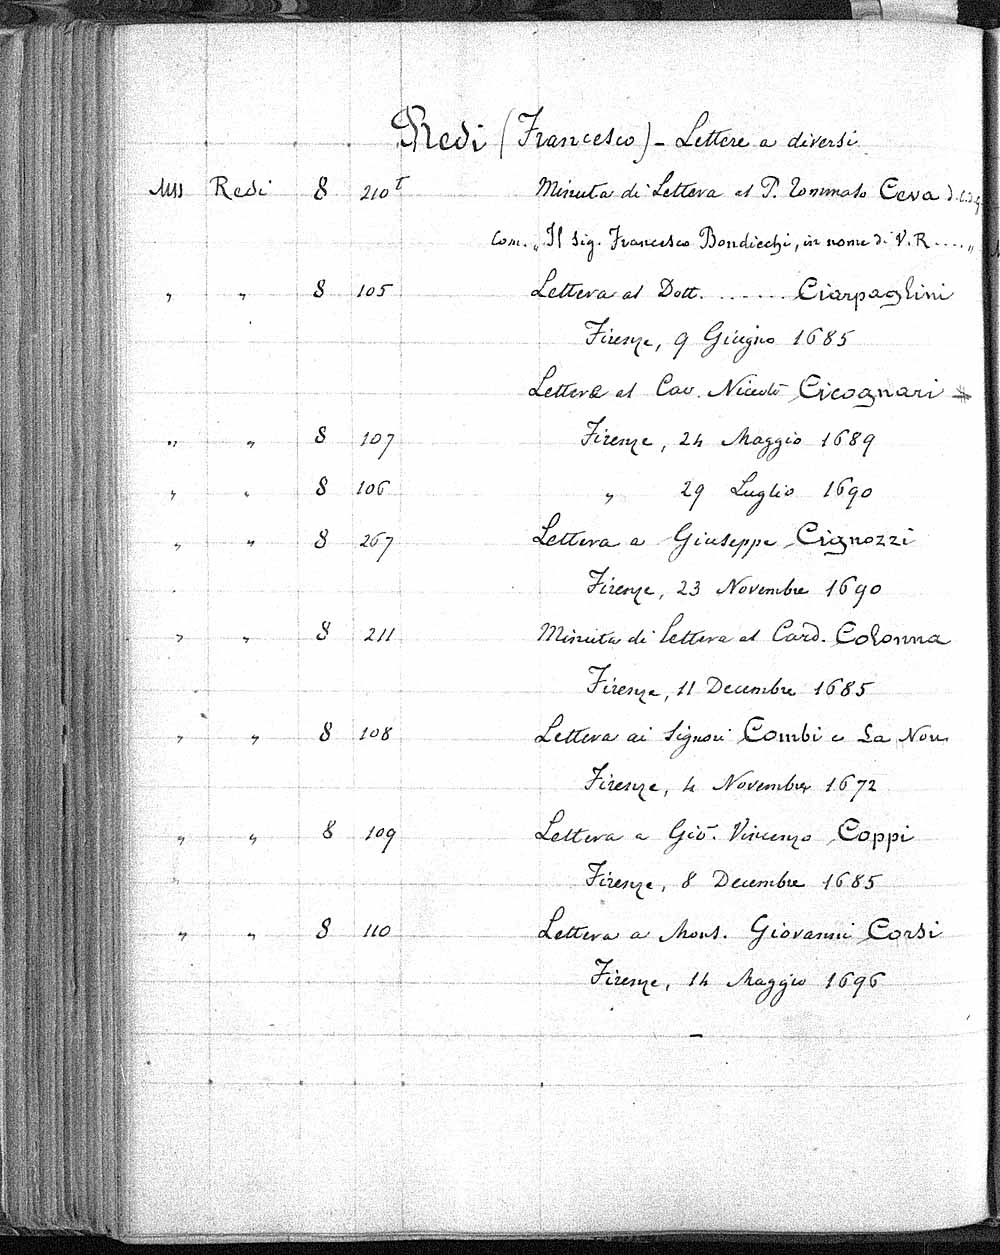 Redi (Francesco) - Lettere a diversi
Mss Redi 8 210t Minuta di Lettera al P. Tommaso Ceva d. C. d. G.
Com. „ Il Sig. Francesco Bondicchi, in nome di V. R. .... „
„ „ 8 105 Lettera al Dott. ....... Ciarpaglini
Firenze, 9 Giugno 1685
Lettere al Cav. Niccolò Cicognari
„ „ 8 107 Firenze, 24 Maggio 1689
„ „ 8 106 „ 29 Luglio 1690
„ „ 8 267 Lettera a Giuseppe Cignozzi
Firenze, 23 Novembre 1690
„ „ 8 211 Minuta di lettera al Card. Colonna
Firenze, 11 Decembre 1685
„ „ 8 108 Lettera ai Signori Combi e La Nou
Firenze, 4 Novembre 1672
„ „ 8 109 Lettera a Gio. Vincenzo Coppi
Firenze, 8 Decembre 1685
„ „ 8 110 Lettera a Mons. Giovanni Corsi
Firenze, 14 Maggio 1696